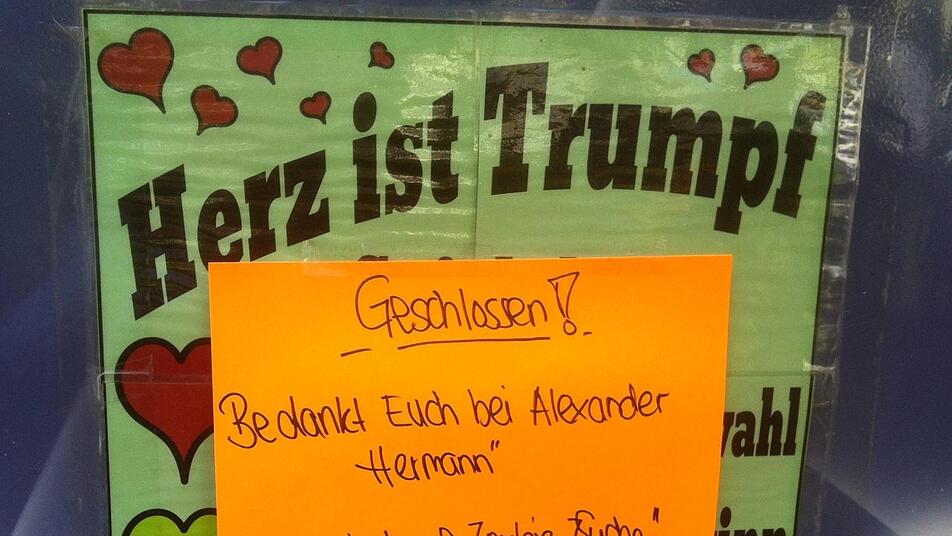 Herz ist Trumpf
Geschlossen!
Bedankt Euch bei Alexander
Hermann"
wahl